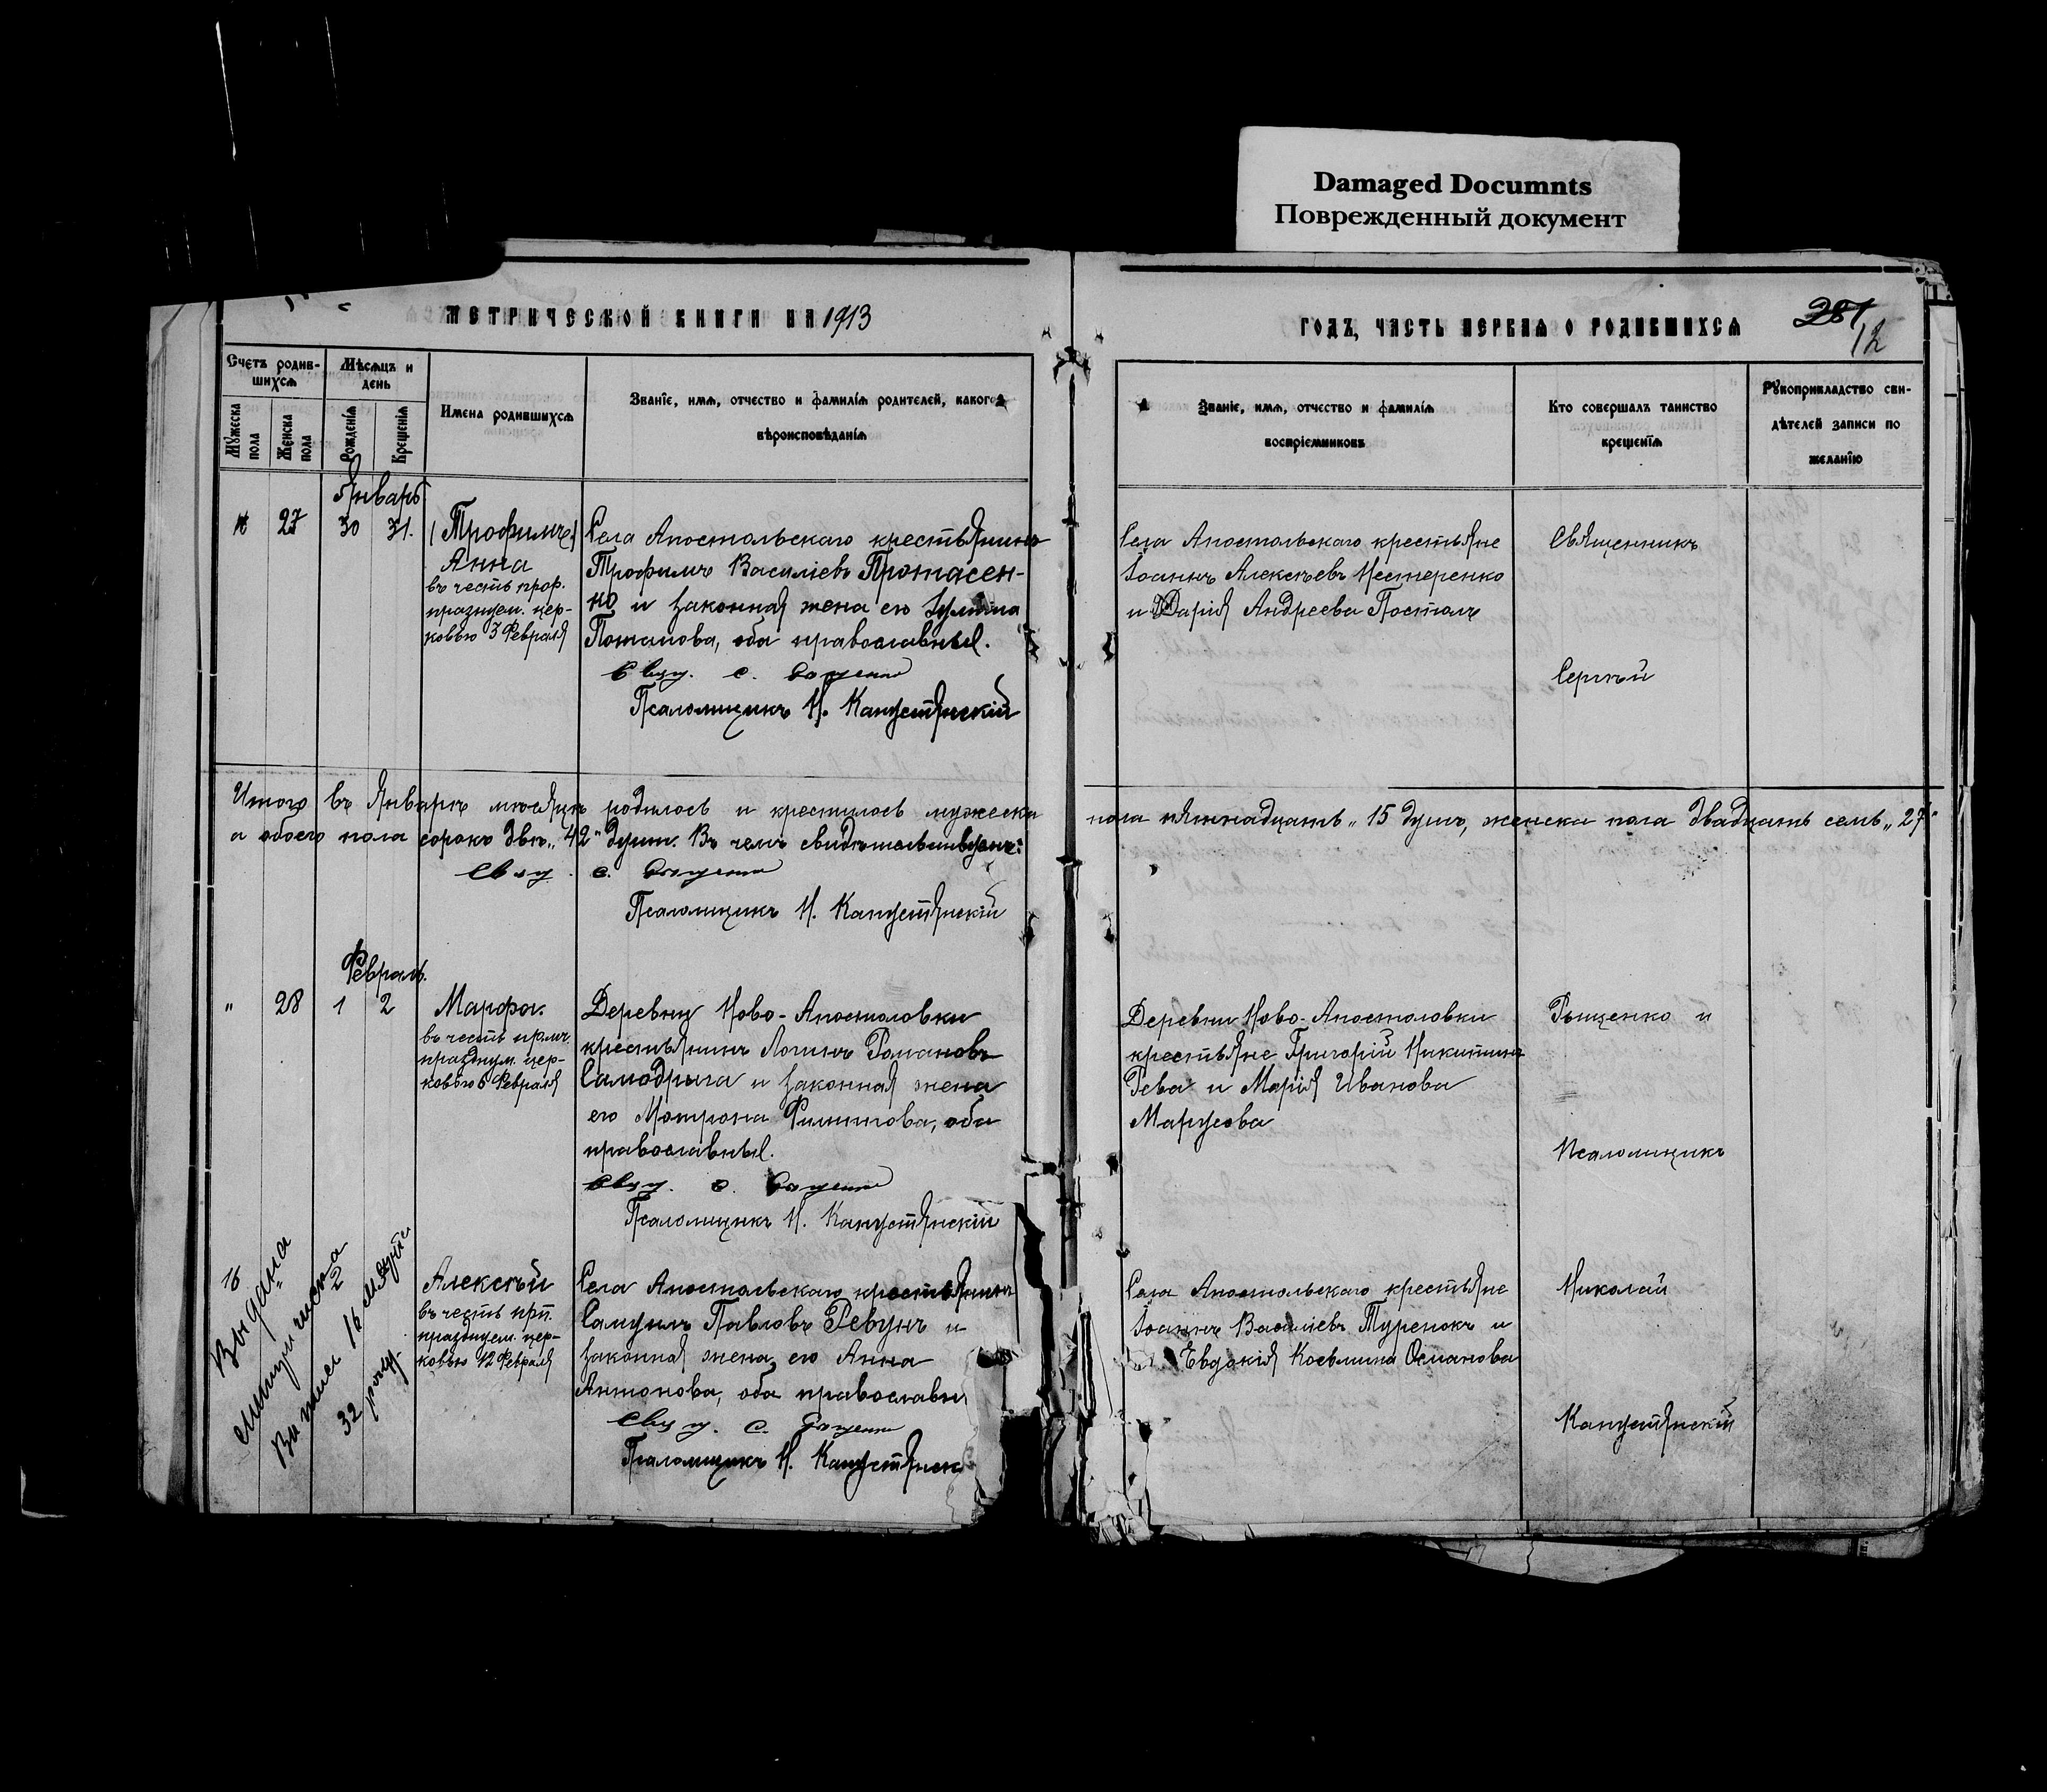 Damaged Documnts
Поврежденный документ
МЕТРИЧЕСКОЙ КНИГИ НА 1913
Счетъ родив-
шихся
Мѣсяцъ и
день
Мужеска
пола
Женска
пола
Рожденія
Крещенія
Имена родившихся
Званіе, имя, отчество и фамилія родителей, какого
вѣроисповѣданія
Январь
27
30
31.
(Трофимъ)
Анна
въ честь прор.
празднуем. цер-
ковью 3 Февраля
Села Апостольскаго крестьянинъ
Трофимъ Василіевъ Протасен-
ко и законная жена его
Потапова, оба православные.
Свящ. С.
Псаломщикъ Н. Капустянскій
Итого въ Январѣ мѣсяцѣ родилось и крестилось мужеска
а обоего пола сорокъ двѣ „42" души. Въ чемъ свидѣтельствуемъ:
Свящ. С.
Псаломщикъ Н. Капустянскій
Февраль.
"
28
1
2
Марфа.
въ честь прмч.
празднуем. цер-
ковью 6 Февраля
Деревни Ново-Апостоловки
крестьянинъ Логинъ Романовъ
Самодрыга и законная жена
его Мотрона Филиппова, оба
православные.
Свящ. С.
Псаломщикъ Н. Капустянскій
16
"
2
Выдана
метрическа
Выписъ 16
32 року.
Алексѣй
въ честь прп.
празднуем. цер-
ковью 12 Февраля
Села Апостольскаго крестьянинъ
Самуилъ Павловъ Ревунъ и
законная жена его Анна
Антонова, оба православн
Свящ. С.
Псаломщикъ Н. Капустянск
ГОДЪ, ЧАСТЬ ПЕРВАЯ О РОДИВШИХСЯ
281
12
Званіе, имя, отчество и фамилія
воспріемниковъ
Кто совершалъ таинство
крещенія
Рукоприкладство сви-
дѣтелей записи по
желанію
Села Апостольскаго крестьяне
Іоаннъ Алексѣевъ Нестеренко
и Дарія Андреева Посталъ
Священникъ
Сергѣй
пола пятнадцать „15 душъ, женска пола двадцать семь „27"
Деревни Ново-Апостоловки
крестьяне Григорій Никитинъ
Гева и Марія Иванова
Марусова
Гященко и
Псаломщикъ
Села Апостольскаго крестьяне
Іоаннъ Василіевъ Туренокъ и
Евдокія Косьмина Османова
Николай
Капустянскій